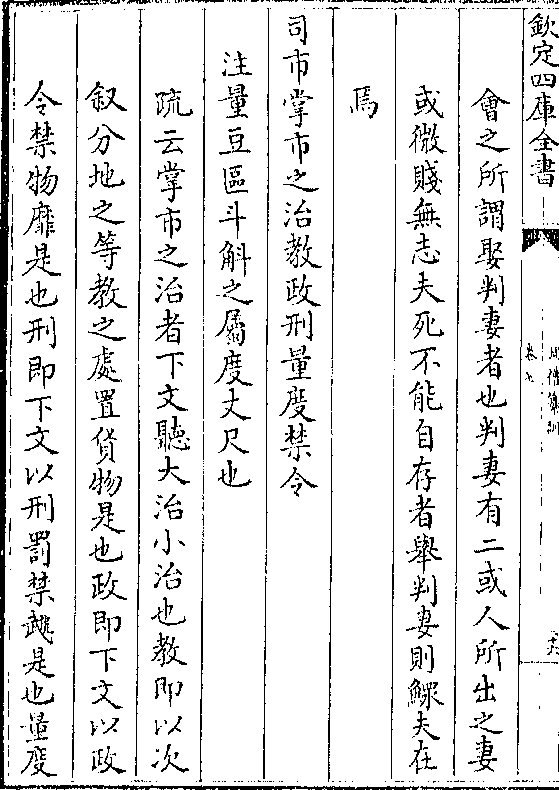 欽定四庫全書
卷七
會之所謂娶判妻者也判妻有二或人所出之妻
或微賤無志夫死不能自存者舉判妻則鰥夫在
焉
司市掌市之治教政刑量度禁令
注量豆區斗斛之屬度丈尺也
疏云掌市之治者下文聽大治小治也教即以次
叙分地之等教之處置貨物是也政即下文以政
令禁物靡是也刑即下文以刑罰禁虣是也量度